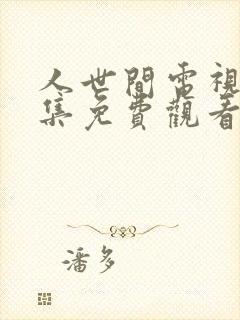 人世間電視
集免費觀看
潘多